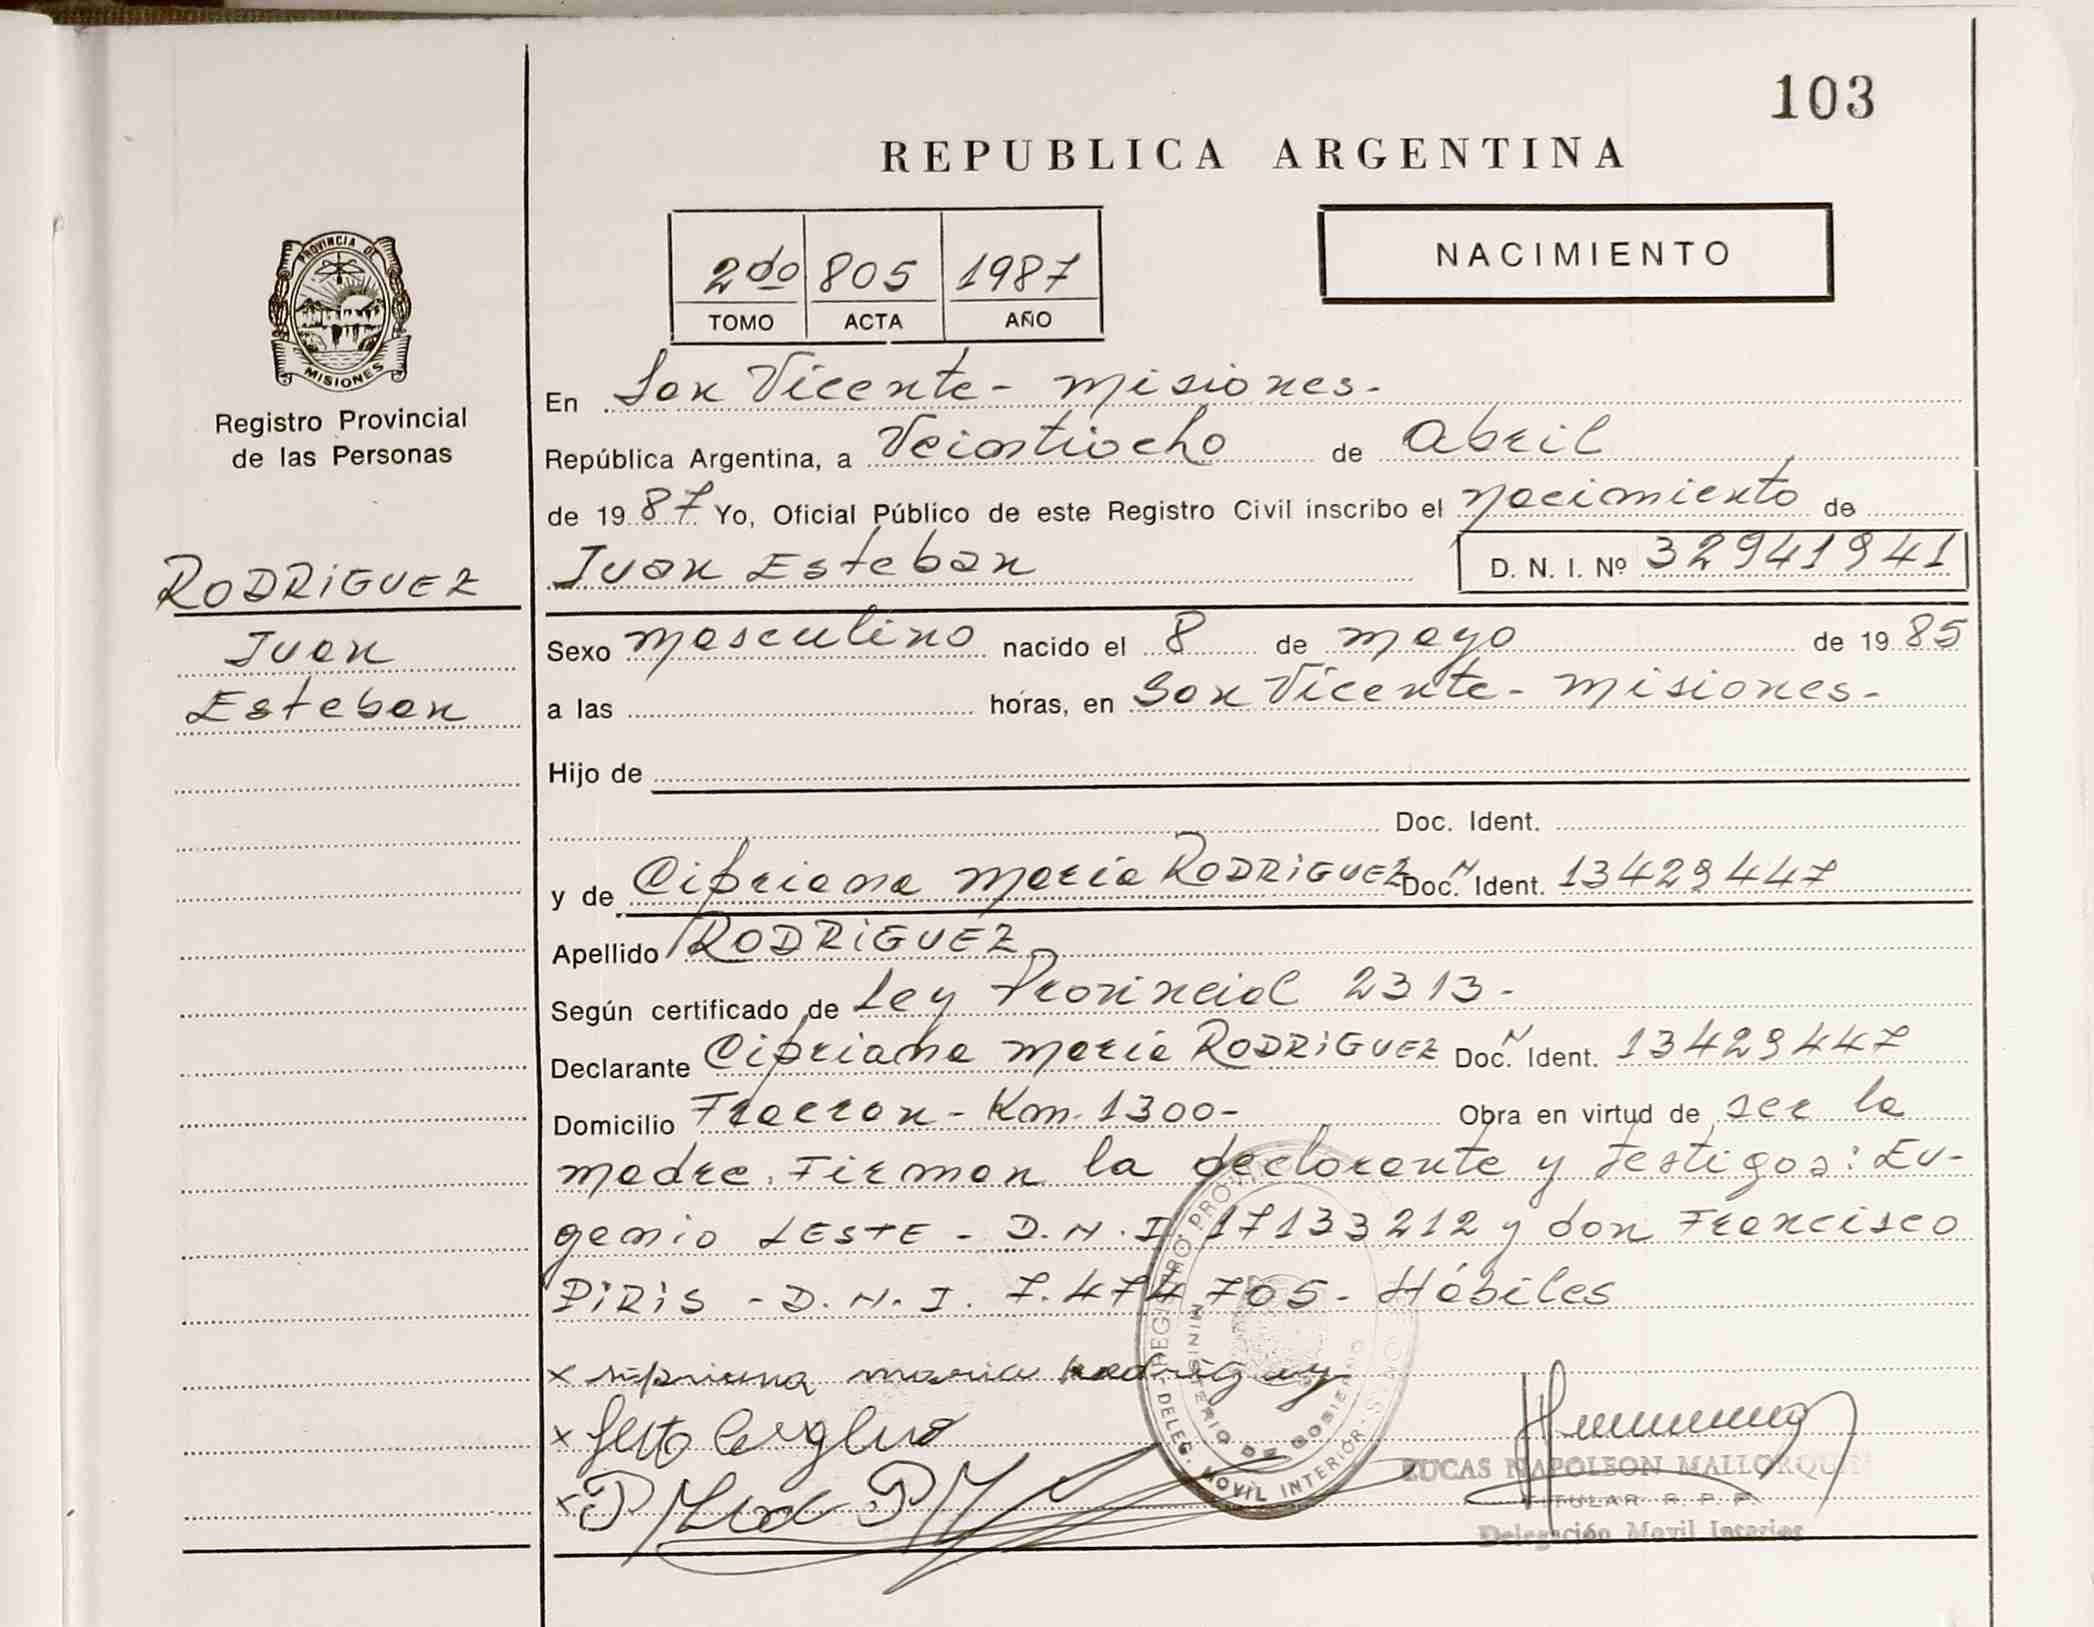 103
REPUBLICA ARGENTINA
2do 805 1987
TOMO ACTA AÑO
NACIMIENTO
PROVINCIA DE
MISIONES
Registro Provincial
de las Personas
RODRIGUEZ
Juan
Esteban
En San Vicente - Misiones -
República Argentina, a Veintiocho de Abril
de 1987 Yo, Oficial Público de este Registro Civil inscribo el nacimiento de
Juan Esteban D. N. I. Nº 32941941
Sexo masculino nacido el 8 de mayo de 1985
a las horas, en San Vicente - Misiones -
Hijo de
Doc. Ident.
y de Cipriana María RODRIGUEZ Doc. N Ident. 13429447
Apellido RODRIGUEZ
Según certificado de Ley Provincial 2313 -
Declarante Cipriana María RODRIGUEZ Doc. N Ident. 13429447
Domicilio Fracran - Km. 1300 - Obra en virtud de ser la
madre. Firman la declarante y testigos: Eu-
genio LESTE - D.N.I. 17133212 y don Francisco
PIRIS - D.N.I. 7.474.705 - Hábiles
x sipriana maria Rodriguez
x
x
REGISTRO PROV
DELEG. MOVIL INTERIOR
MINISTERIO DE GOBIERNO
LUCAS NAPOLEON MALLORQUIN
TITULAR R. P. P.
Delegación Movil Interior